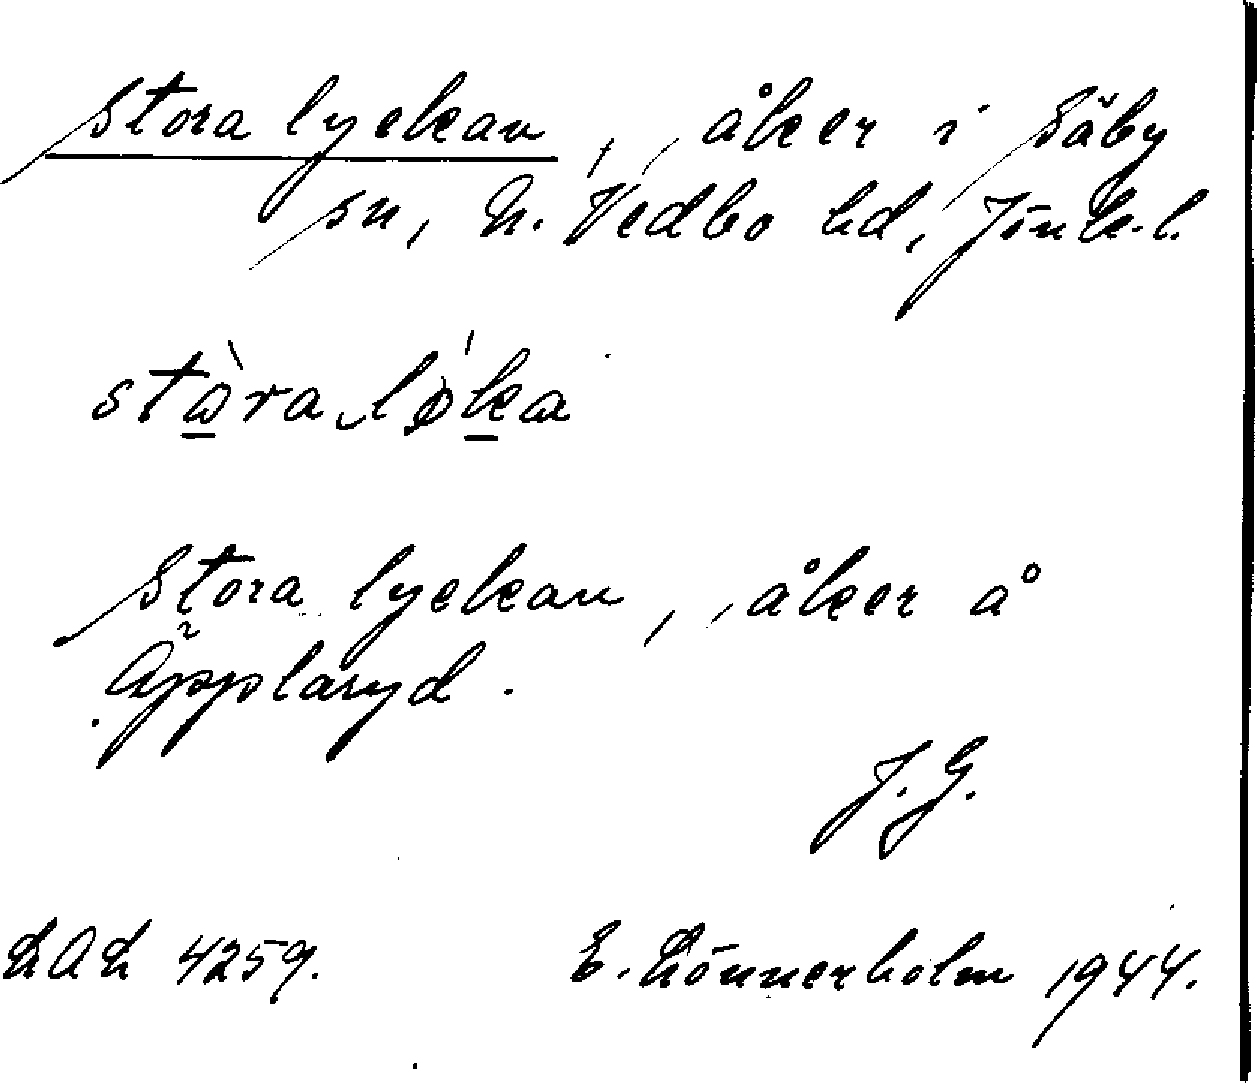 Stora lyckan, åker i Säby
sn, N. Vedbo hd, Jönk. l.
stòra løka
Stora lyckan, åker å
Äpplaryd.
J. G.
LAL 4259.
E. Lönnerholm 1944.